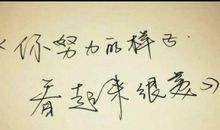 《你努力的样子
看起来很美》